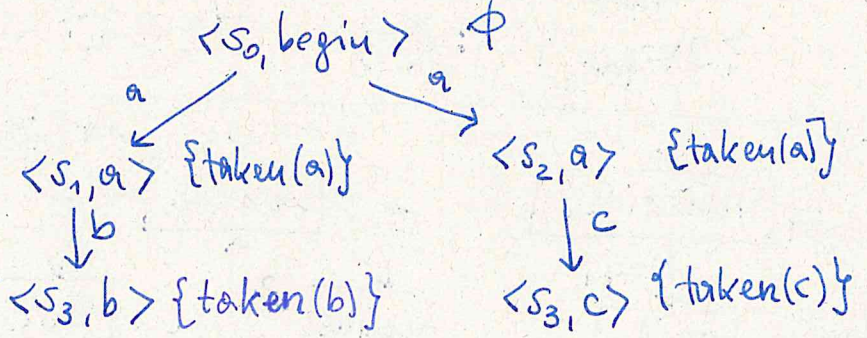 <s₀, begin> ϕ
a a
<s₁, a> {taken(a)} <s₂, a> {taken(a)}
b c
<s₃, b> {taken(b)} <s₃, c> {taken(c)}